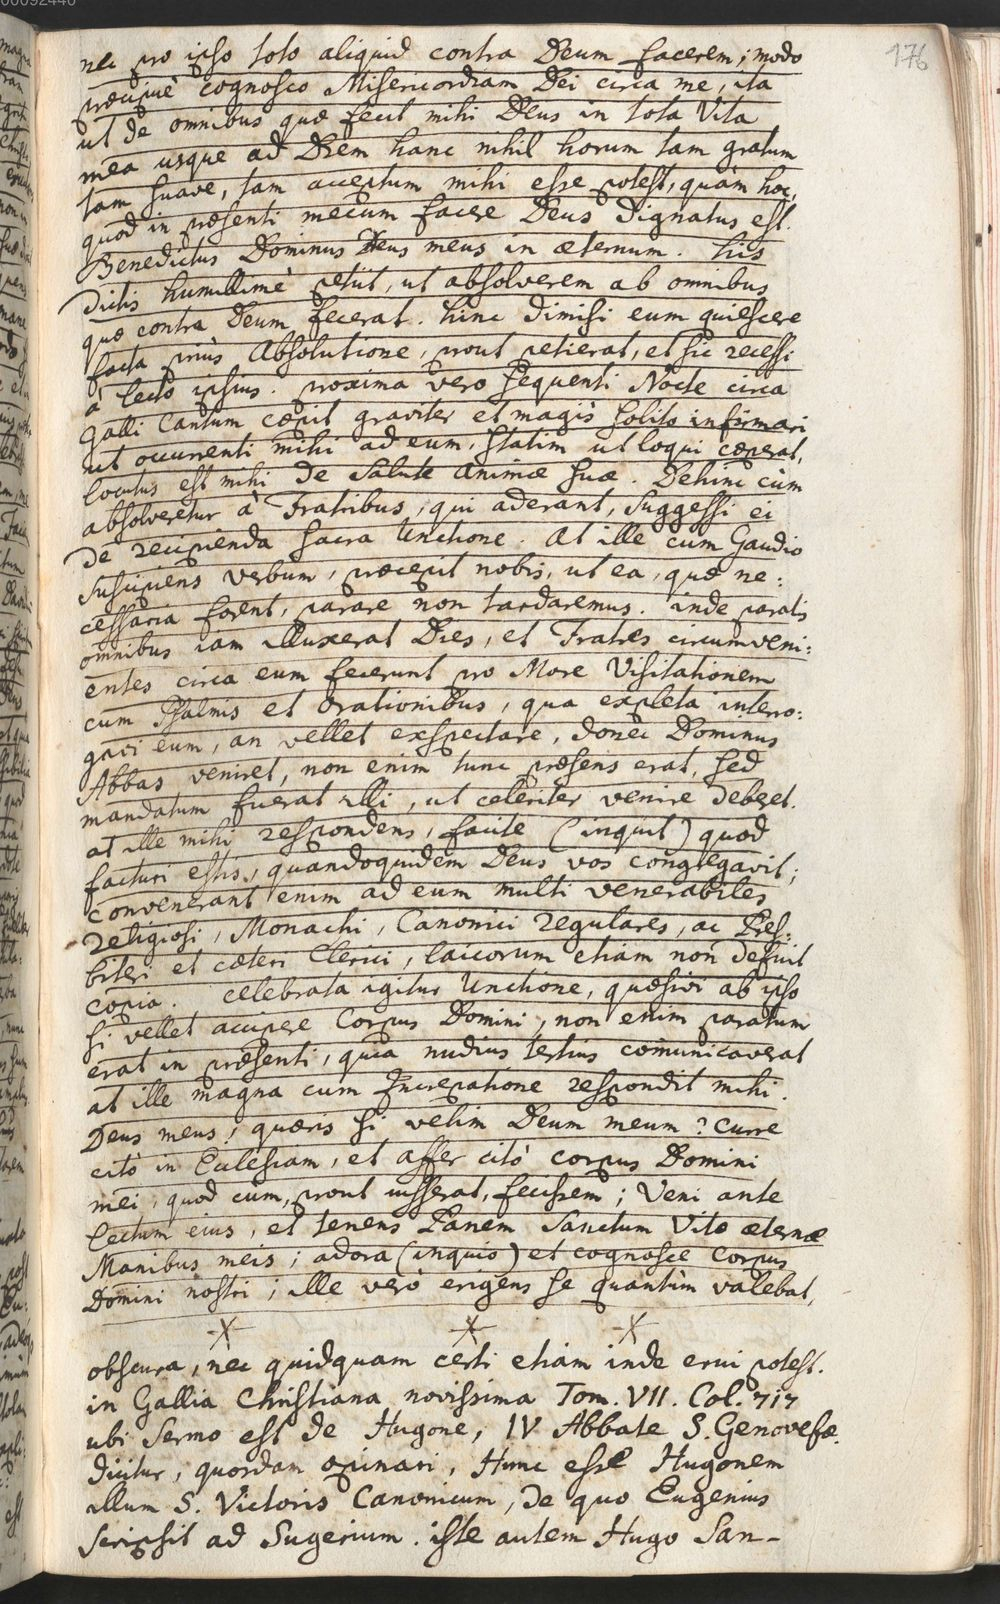 176
nec pro ipso toto aliquid contra Deum facerem; modo
præcipuè cognosco Misericordiam Dei circa me, ita
ut de omnibus quæ fecit mihi Deus in tota Vita
mea usque ad Diem hanc nihil horum tam gratum
tam suave, tam acceptum mihi esse potest, quàm hoc,
quod in præsenti mecum facere Deus Dignatus est.
Benedictus Dominus Deus meus in æternum. his
dictis humillimè petiit, ut absolverem ab omnibus
quæ contra Deum fecerat. hinc dimisi eum quiescere
facta priùs Absolutione, prout petierat, et sic recessi
à lecto ipsius. proxima vero sequenti Nocte circa
Galli Cantum cæpit graviter et magis solito infirmari
ut occurrenti mihi ad eum, statim ut loqui cæperat,
locutus est mihi de Salute Animæ suæ. Dehinc cùm
absolveretur à Fratribus, qui aderant, suggessi ei
de recipienda sacra Unctione. At ille cum Gaudio
suscipiens verbum, præcepit nobis, ut ea, quæ ne:
cessaria forent, parare non tardaremus. inde paratis
omnibus iam illuxerat Dies, et Fratres circumveni:
entes circa eum fecerunt pro More Visitationem
cum Psalmis et Orationibus, qua expleta interro:
gavi eum, an vellet exspectare, donec Dominus
Abbas veniret, non enim tunc præsens erat, sed
mandatum fuerat illi, ut celeriter venire deberet.
at ille mihi respondens, facite (inquit) quod
facturi estis, quandoquidem Deus vos congregavit;
convenerant enim ad eum multi venerabiles
religiosi, Monachi, Canonici regulares, ac Pres:
biteri et cæteri Clerici, laicorum etiam non defuit
copia. celebrata igitur Unctione, quæsivi ab ipso
si vellet accipere Corpus Domini, non enim paratum
erat in præsenti, quia nudius tertius comunicaverat
at ille magna cum Increpatione respondit mihi.
Deus meus! quæris si velim Deum meum? curre
citò in Ecclesiam, et affer citò corpus Domini
mei, quod cum, prout iusserat, fecissem; Veni ante
lectum eius, et tenens Panem Sanctum Vitæ æternæ
Manibus meis; adora (inquio) et cognosce Corpus
Domini nostri; ille verò erigens se quantùm valebat,
obscura, nec quidquam certi etiam inde erui potest.
in Gallia Christiana novissima Tom. VII. Col. 717
ubi Sermo est de Hugone, IV Abbate S. Genovefæ.
dicitur, quosdam opinari, Hunc esse Hugonem
illum S. Victoris Canonicum, de quo Eugenius
scripsit ad Sugerium. iste autem Hugo San-